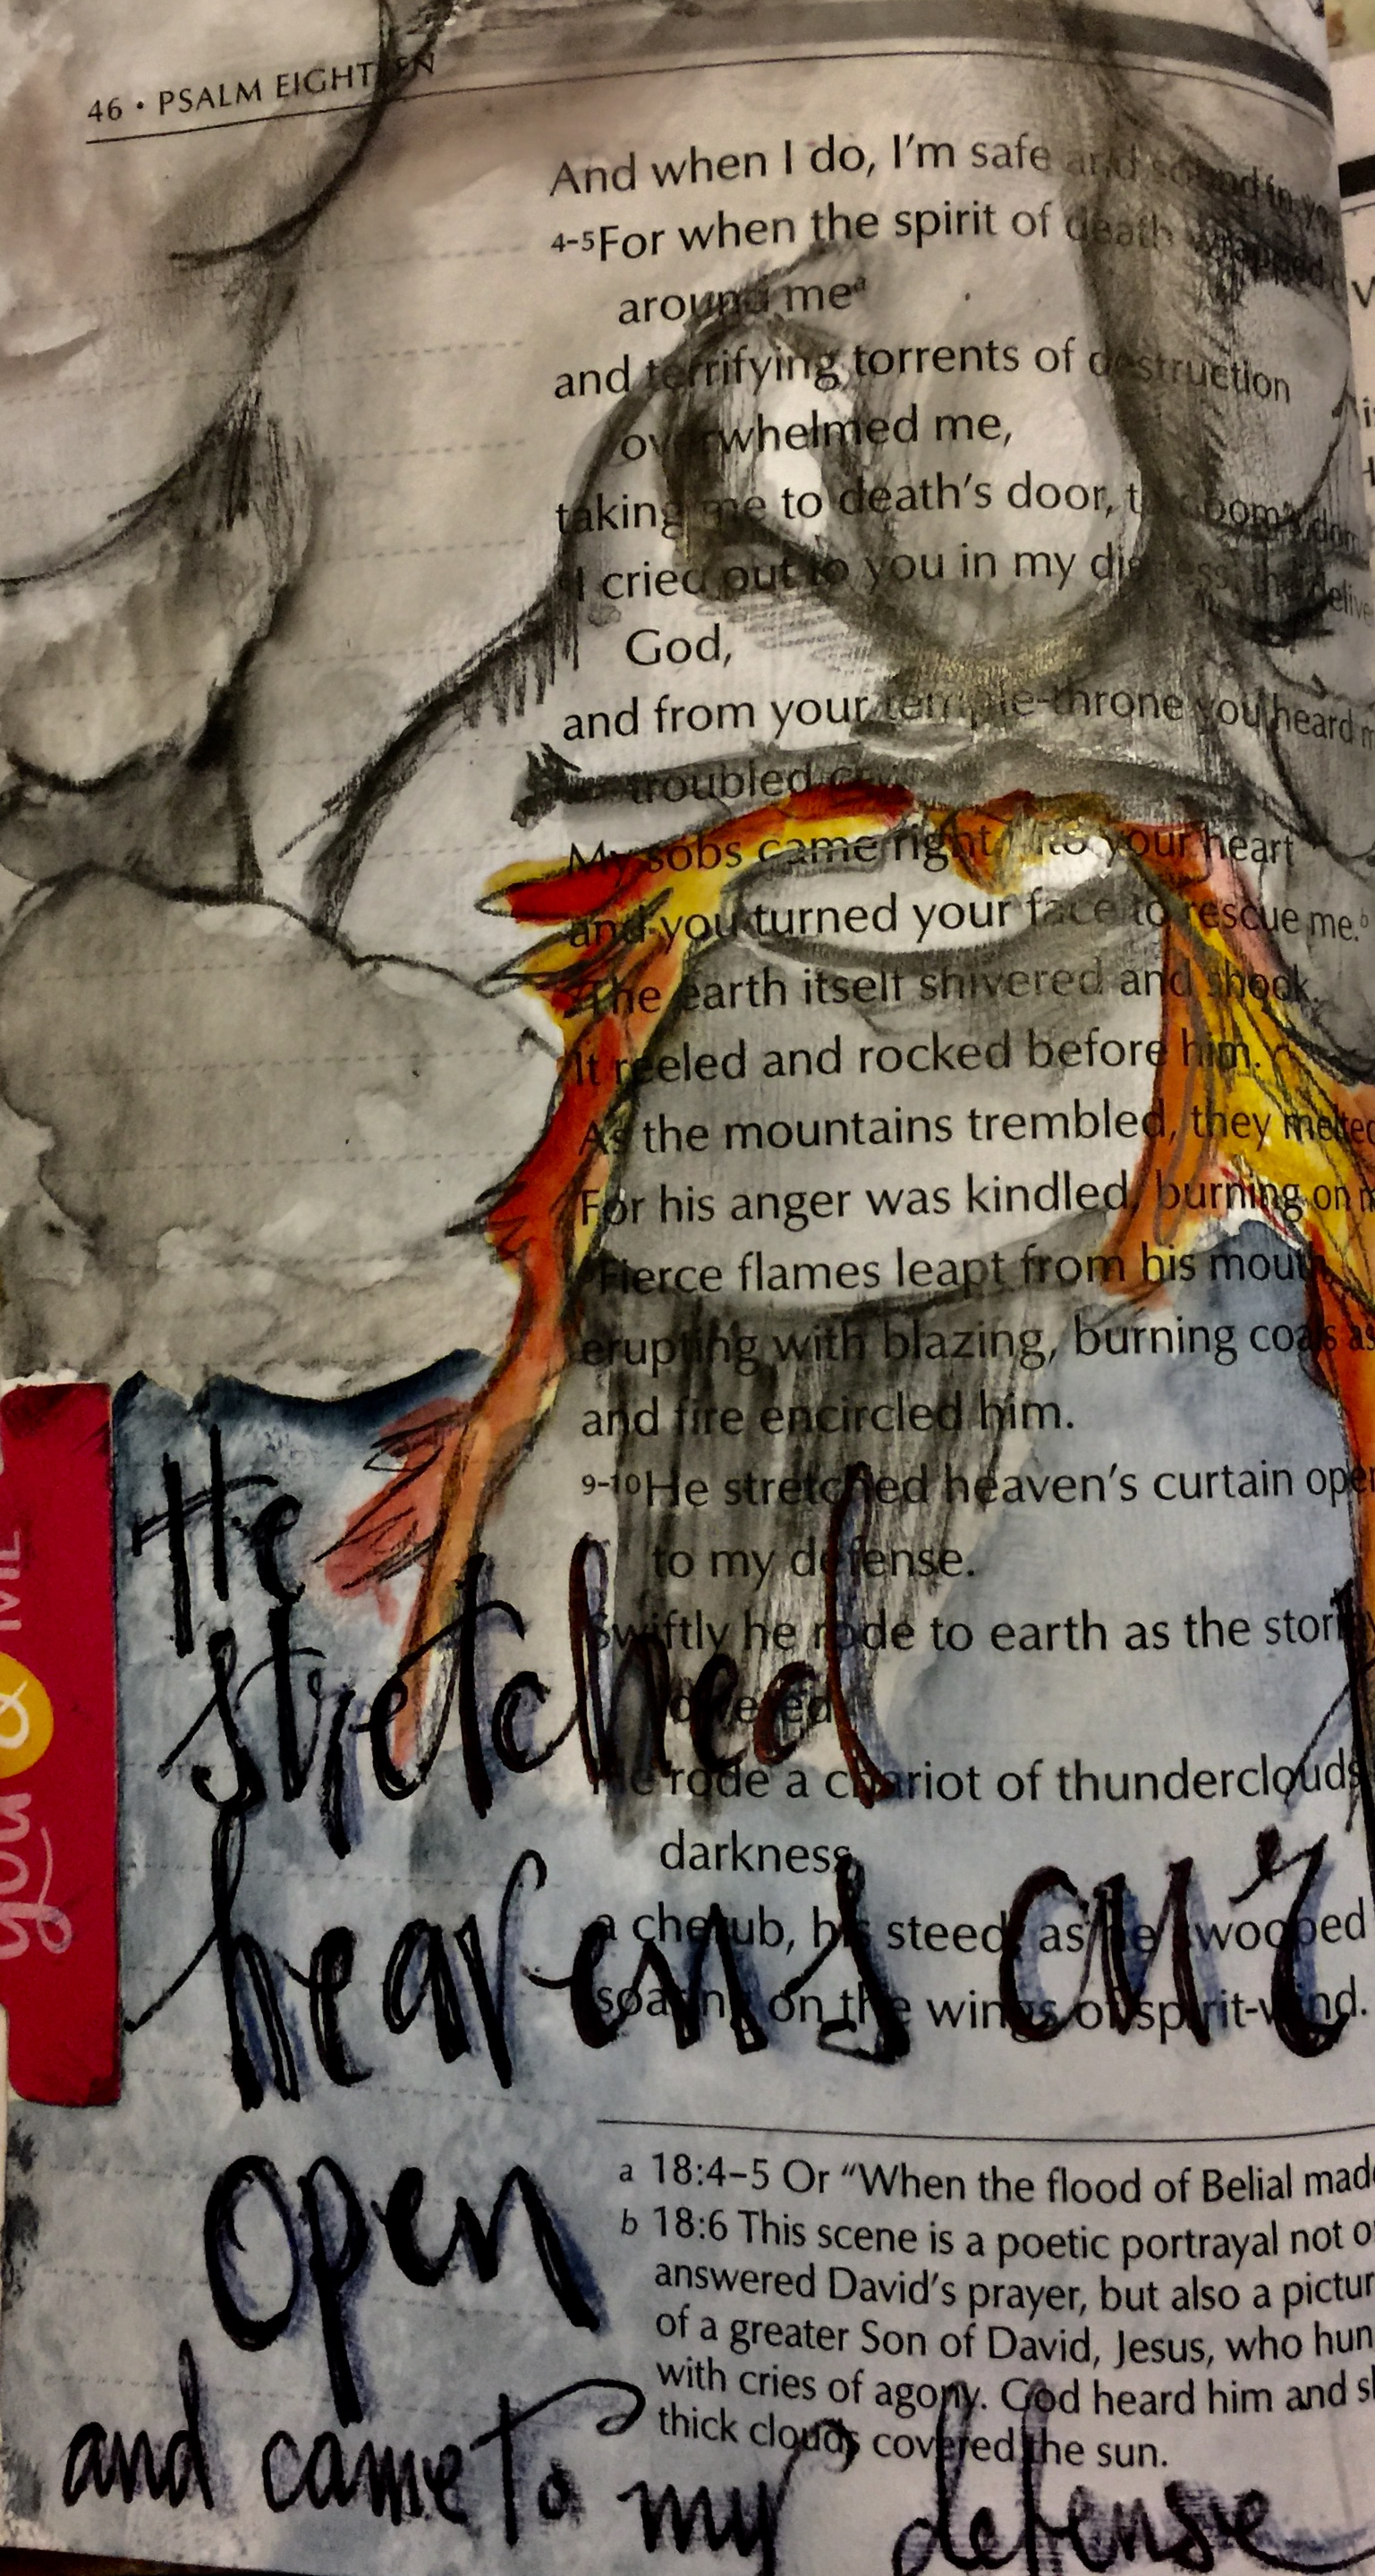 46 • PSALM EIGHTEEN
And when I do, I'm safe and sound in
4-5For when the spirit of death wrapped
around meª
and terrifying torrents of destruction
overwhelmed me,
taking me to death's door, to doom's
I cried out to you in my distress, the
God,
and from your temple-throne you heard
troubled cry
My sobs came right into your heart
and you turned your face to rescue me.b
The earth itself shivered and shook.
It reeled and rocked before him.
As the mountains trembled, they melted
For his anger was kindled, burning on
Fierce flames leapt from his mouth,
erupting with blazing, burning coals as
and fire encircled him.
9-10He stretched heaven's curtain open
to my defense.
Swiftly he rode to earth as the
He rode a chariot of thunderclouds
darkness,
a cherub, his steed, as he swooped
soaring on the wings of spirit-wind.
He
stretched
heavens
open
and came to my defense
a 18:4–5 Or “When the flood of Belial
b 18:6 This scene is a poetic portrayal not
answered David's prayer, but also a
of a greater Son of David, Jesus, who
with cries of agony. God heard him and
thick clouds covered the sun.
you & ME